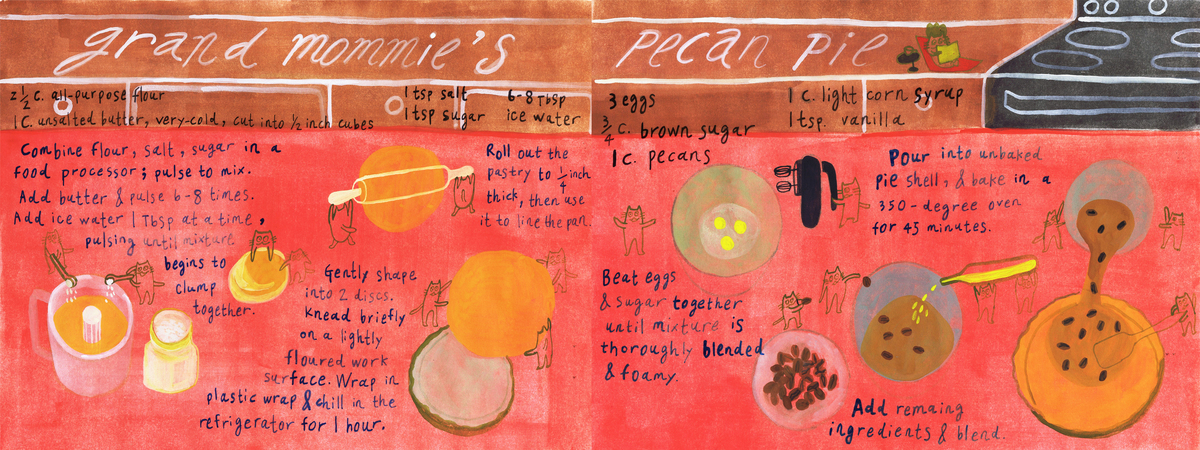 grand mommie's
pecan pie
2 1/2 c. all-purpose flour
1 C. unsalted butter, very-cold, cut into 1/2 inch cubes
1 tsp salt
1 tsp sugar
6-8 Tbsp
ice water
3 eggs
3/4 c. brown sugar
1 c. pecans
1 c. light corn syrup
1 tsp. vanilla
Combine flour, salt, sugar in a
food processor; pulse to mix.
Add butter & pulse 6-8 times.
Add ice water 1 Tbsp at a time,
pulsing until mixture
begins to
clump
together.
Gently shape
into 2 discs.
Knead briefly
on a lightly
floured work
surface. Wrap in
plastic wrap & chill in the
refrigerator for 1 hour.
Roll out the
pastry to 1/4 inch
thick, then use
it to line the pan.
Beat eggs
& sugar together
until mixture is
thoroughly blended
& foamy.
Add remaing
ingredients & blend.
Pour into unbaked
pie shell, & bake in a
350-degree oven
for 45 minutes.